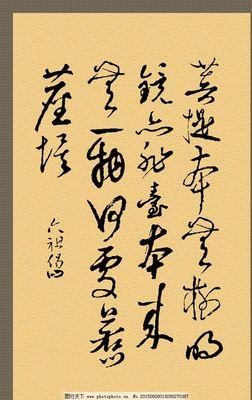 菩提本無樹明
鏡亦非臺本来
無一物何處惹
塵埃
六祖偈
www.photophoto.cn